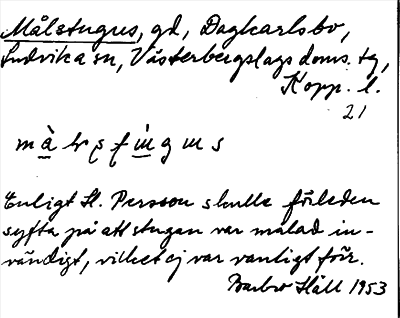 Målstugus, gd, Dagkarlsbo,
Ludvika sn, Västerbergslags doms. tg,
Kopp. l.
21
Enligt H. Persson skulle förleden
syfta på att stugan var målad in-
vändigt, vilket ej var vanligt förr.
Barbro Häll 1953